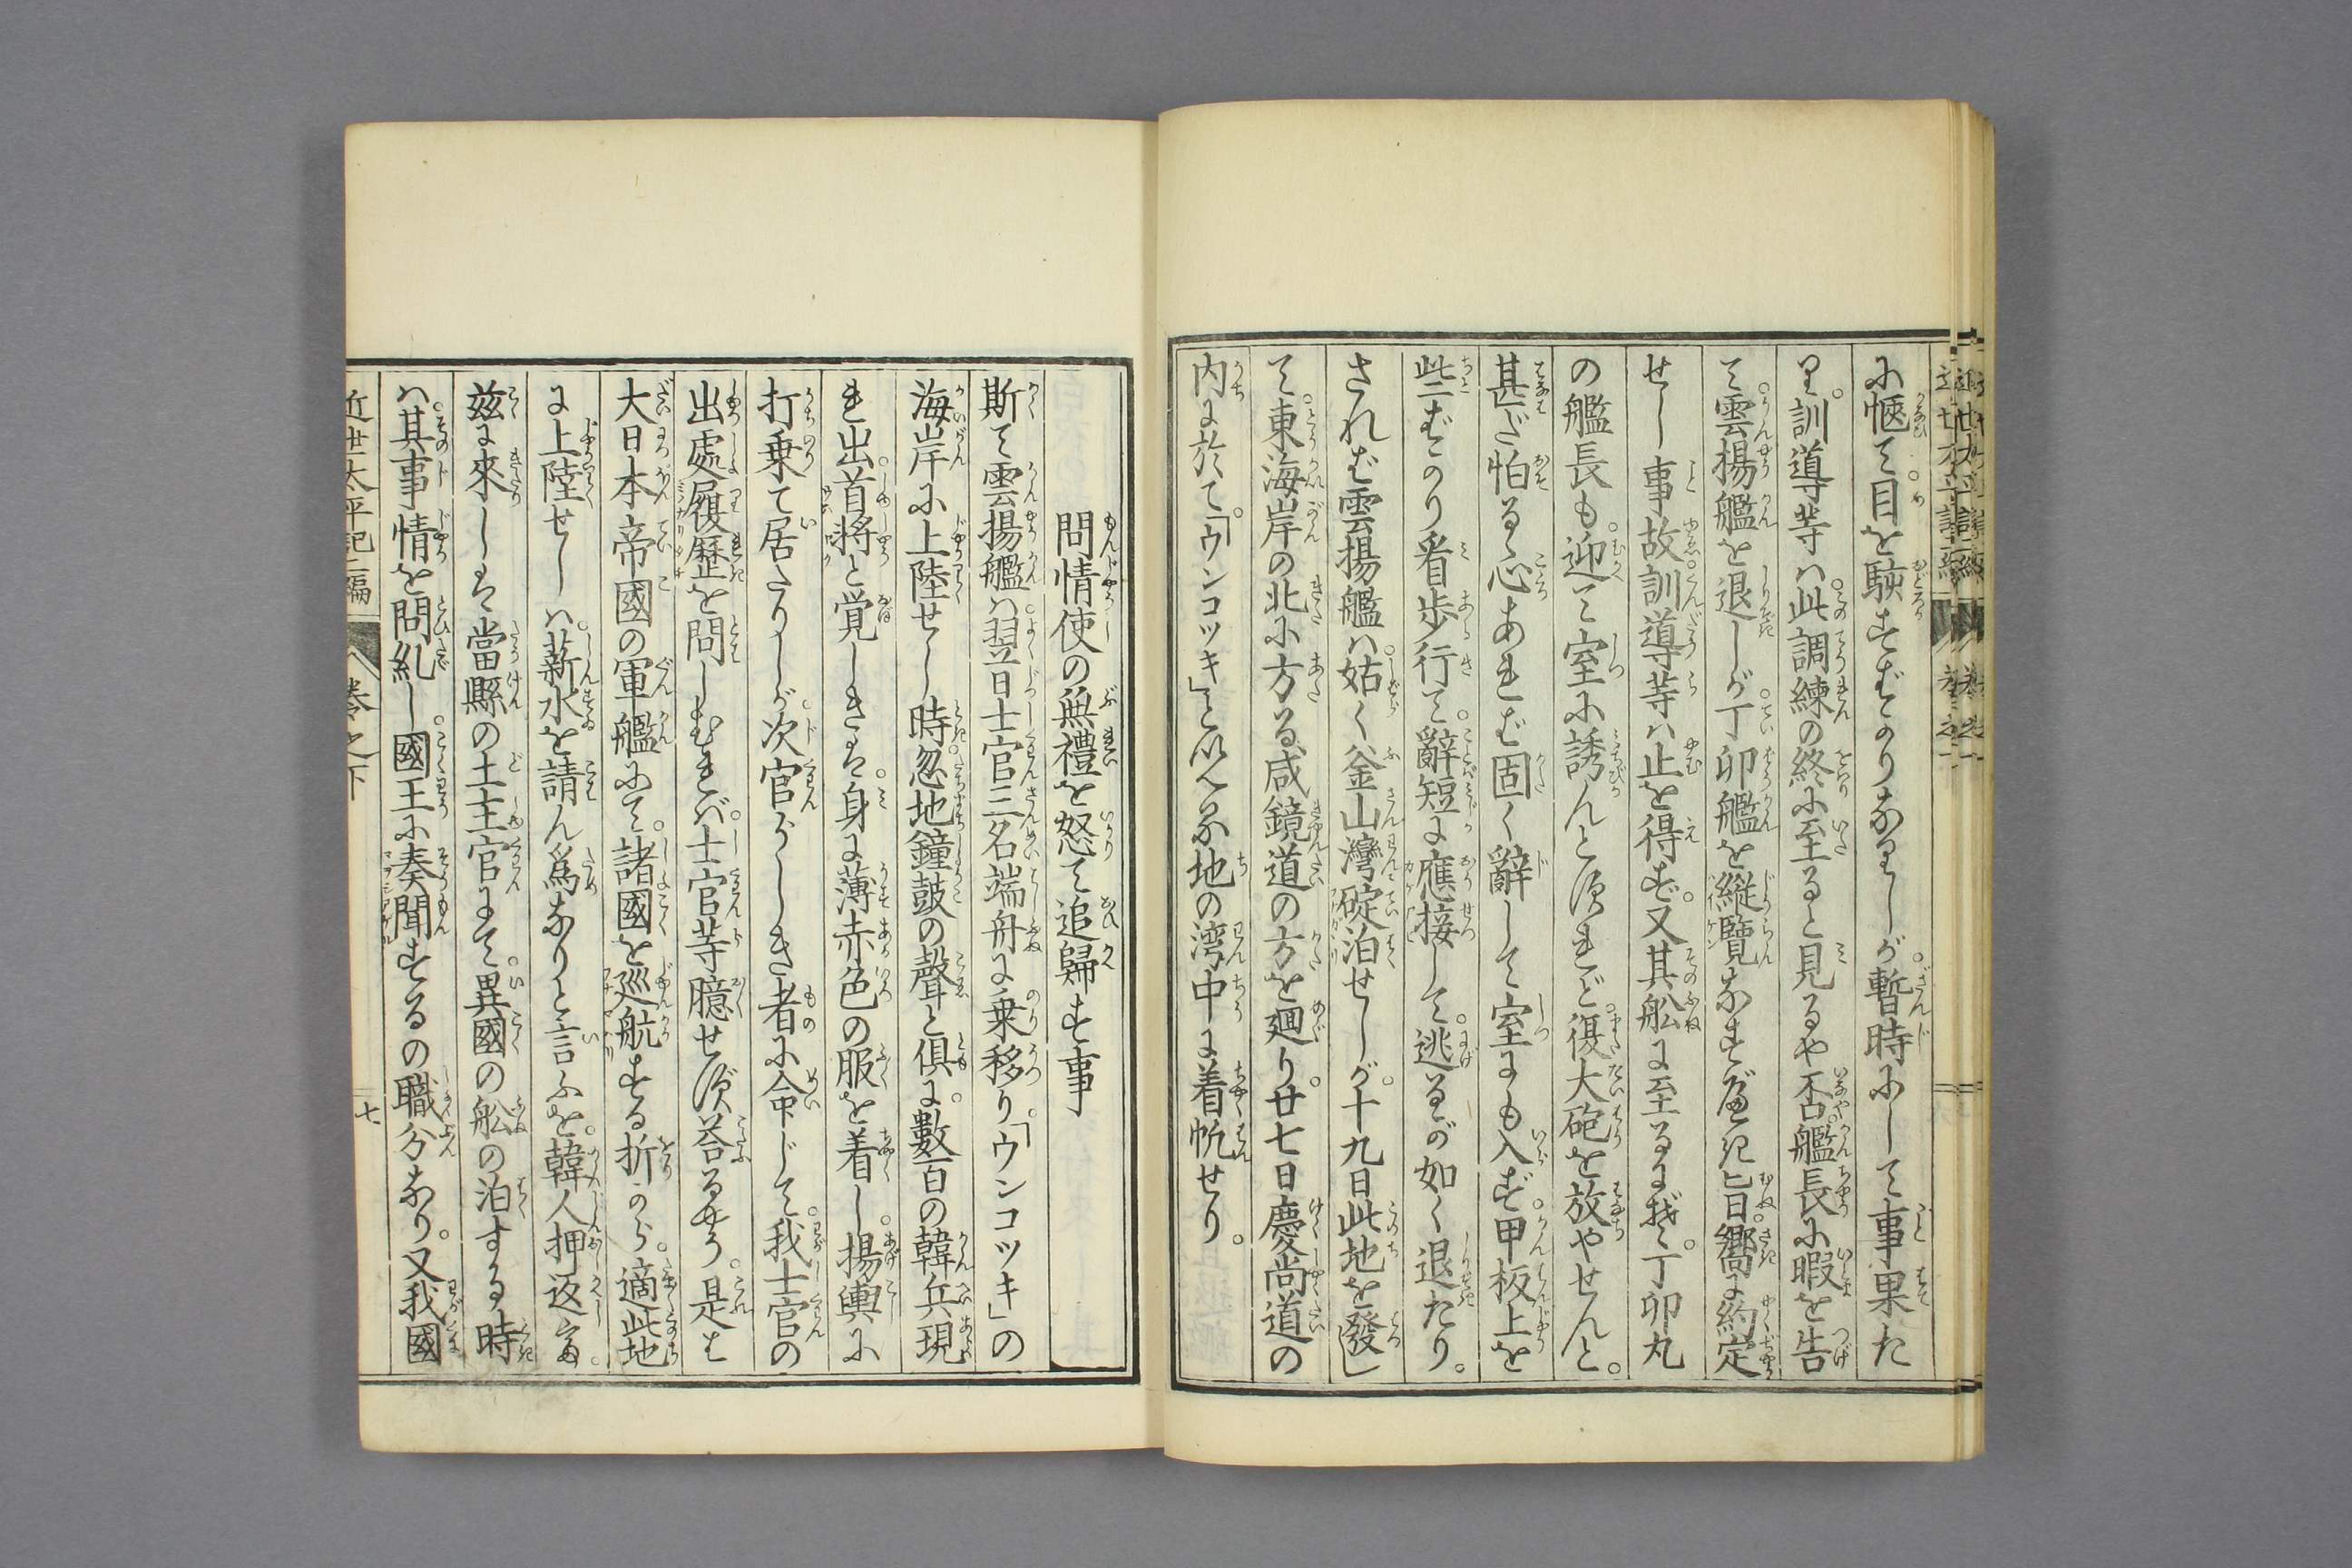 に愜て目を駭すばかりなりしが。暫時にして事果た
り。訓導等ハ此調練の終に至ると見るや否。艦長に暇を告
て。雲揚艦を退しが。丁卯艦を縦覧なすべき旨。嚮に約定
せし事故。訓導等ハ止を得ず。又其舩に至るにぞ。丁卯丸
の艦長も。迎て室に誘んと須れど。復大砲を放やせんと。
甚だ怕る心あれば固く辭して室にも入ず。甲板上を
些ばかり看歩行て。辭短に應接して。逃るが如く退たり。
されば雲揚艦ハ。姑く釜山灣碇泊せしが。十九日此地を發し
て。東海岸の北に方る咸鏡道の方を廻り。廿七日慶尚道の
内に於て。「ウンコツキ」と以へる地の湾中に着帆せり。
問情使の無禮を怒て追歸す事
斯て雲揚艦ハ。翌日士官三名端舟に乗移り。「ウンコツキ」の
海岸に上陸せし時。忽地鐘鼓の聲と倶に。數百の韓兵現
れ出。首将と覚しきは。身に薄赤色の服を着し。揚輿に
打乗て居たりしが。次官らしき者に命じて。我士官の
出處履歷を問しむれバ。士官等臆せ須答るやう。是は
大日本帝國の軍艦にて。諸國を巡航する折から。適此地
に上陸せしハ。薪水を請ん爲なりと言ふを。韓人押返
茲に來しは當縣の土主官にて。異國の舩の泊する時
ハ。其事情を問糺し。國王に奏聞するの職分なり。又我國
近世太平記二編 巻之下 七